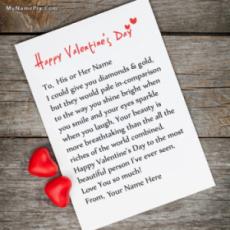 MyNamePix.com
Happy Valentine's Day
To, His or Her Name
I could give you diamonds & gold,
but they would pale in-comparison
to the way you shine bright when
you smile and your eyes sparkle
when you laugh. Your beauty is
more breathtaking than the all the
riches of the world combined.
Happy Valentine's Day to the most
beautiful person I've ever seen.
Love You so much!
From, Your Name Here